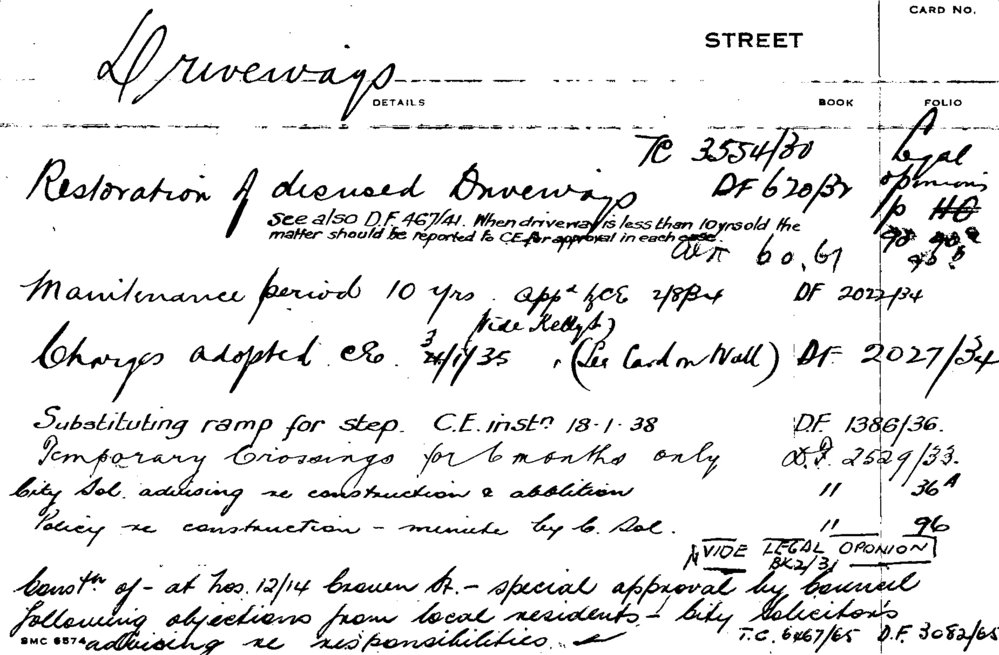 CARD NO.
STREET
Driveways
DETAILS BOOK FOLIO
TC 3554/30 Legal
Restoration of disused Driveways DF 620/32 opinions
See also D.F. 467/41. When driveway is less than 10 yrs old the p HO
matter should be reported to CE for approval in each case. 90 90a
60, 61 90b
Maintenance period 10 yrs. appd by CE 2/8/34 DF 2022/34
(Vide Kelly)
Charges adopted CE 3/1/35 (See Card on Wall) DF. 2027/34
Substituting ramp for step. C.E. instn 18-1-38 D.F. 1386/36.
Temporary Crossings for 6 months only D.F. 2529/33.
City Sol. advising re construction & abolition " 36A
Policy re construction - minute by C. Sol. " 96
VIDE LEGAL OPONION
BK2/31
Constn of - at Nos. 12/14 Craven St. - special approval by Council
following objections from local residents - City Solicitor's
SMC 6574 advising re responsibilities. T.C. 6467/65 D.F. 3082/65